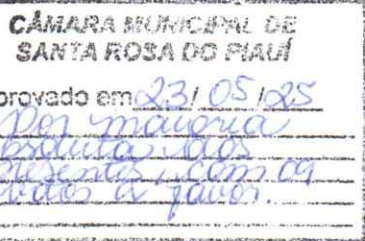 CÂMARA MUNICIPAL DE
SANTA ROSA DO PIAUÍ
provado em 23/05/25
Por maioria
bsoluta dos
resentes, com 09
votos a favor.